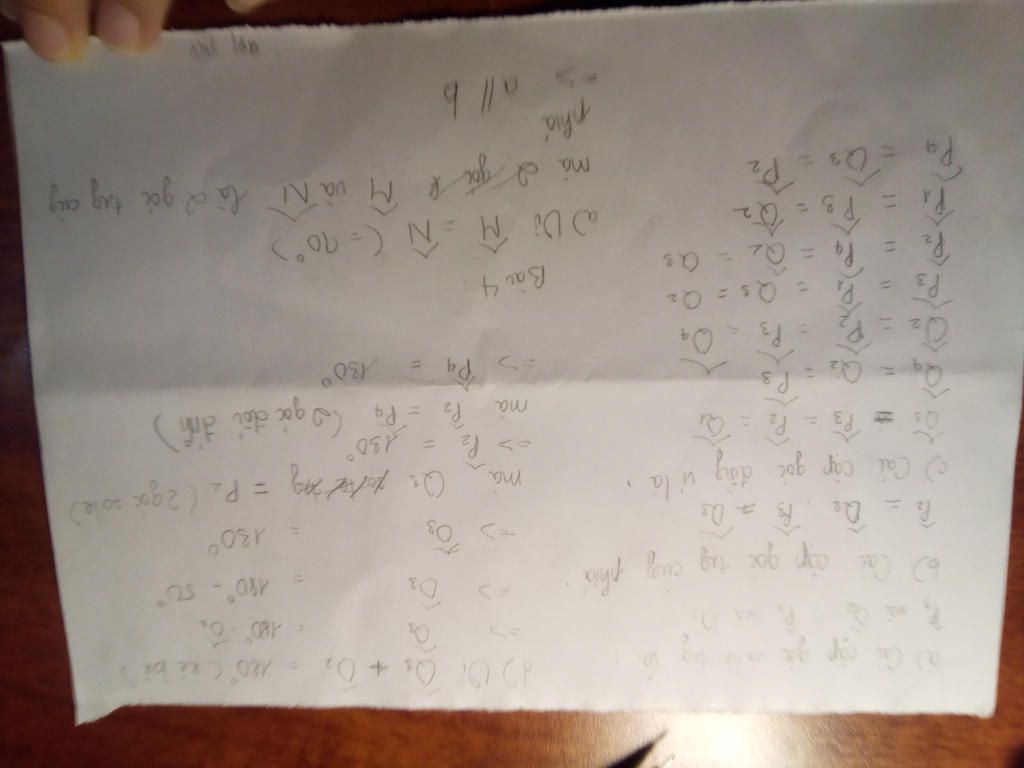 a) Các cặp góc so le trg là :
P3 và Q2 P2 và Q3
b) Các cặp góc trg cùng phía .
P2 = Q2 . P3 = Q3
c) Các cặp góc đồng vị là .
Q3 = P3 = P2 = Q1
Q4 = Q2 = P3
Q2 = P2 = P3 = Q4
P3 = P1 = Q3 = Q2
P2 = P4 = Q2 = Q3
P1 = P3 = Q2
P4 = Q3 = P2
d) Vì Q3 + Q2 = 180° (kề bù)
=> Q3 = 180° - Q2
=> Q3 = 180° - 50°
=> Q3 = 130°
mà Q3 = P2 (2 góc so le)
=> P2 = 130°
mà P2 = P4 (2 góc đối đỉnh)
=> P4 = 130°
Bài 4 :
a) Vì M = N (= 90°)
mà 2 góc M và N là 2 góc trg cùng
phía .
=> a // b